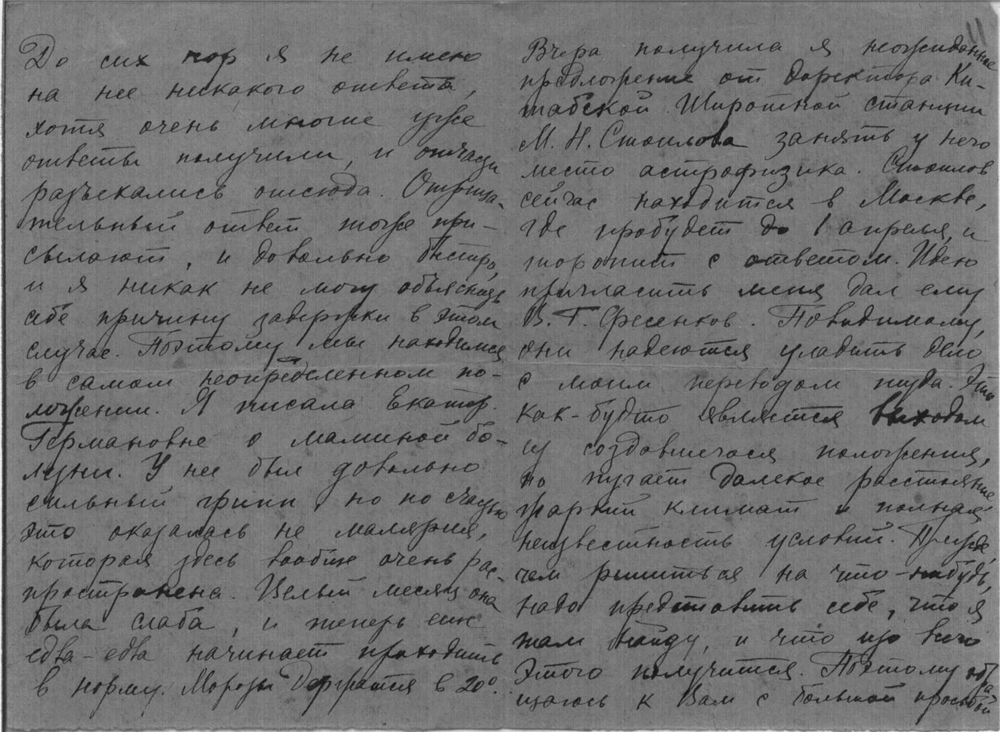 До сих пор я не имею
на нее никакого ответа,
хотя очень многие уже
ответы получили, и отчасти
разъехались отсюда. Отрица-
тельный ответ тоже при-
сылают, и довольно быстро,
и я никак не могу объяснить
себе причину задержки в этом
случае. Поэтому мы находимся
в самом неопределенном по-
ложении. Я писала Екатер.
Германовне о маминой бо-
лезни. У нее был довольно
сильный грипп, но по счастью
это оказалась не малярия,
которая здесь вообще очень рас-
пространена. Целый месяц она
была слаба, и теперь еще
едва-едва начинает приходить
в норму. Морозы держатся в 20°.
11
Вчера получила я неожиданное
предложение от директора Ки-
табской Широтной станции
М. Н. Стоилова занять у него
место астрофизика. Стоилов
сейчас находится в Москве,
где пробудет до 1 апреля, и
торопит с ответом. Идею
пригласить меня дал ему
В. Г. Фесенков. Повидимому,
они надеются уладить дело
с моим переводом туда. Это
как-будто является выходом
из создавшегося положения,
но пугает далекое расстояние,
жаркий климат и полная
неизвестность условий. Прежде
чем решиться на что-нибудь,
надо представить себе, что я
там найду, и что из всего
этого получится. Поэтому обра-
щаюсь к Вам с большой просьбой